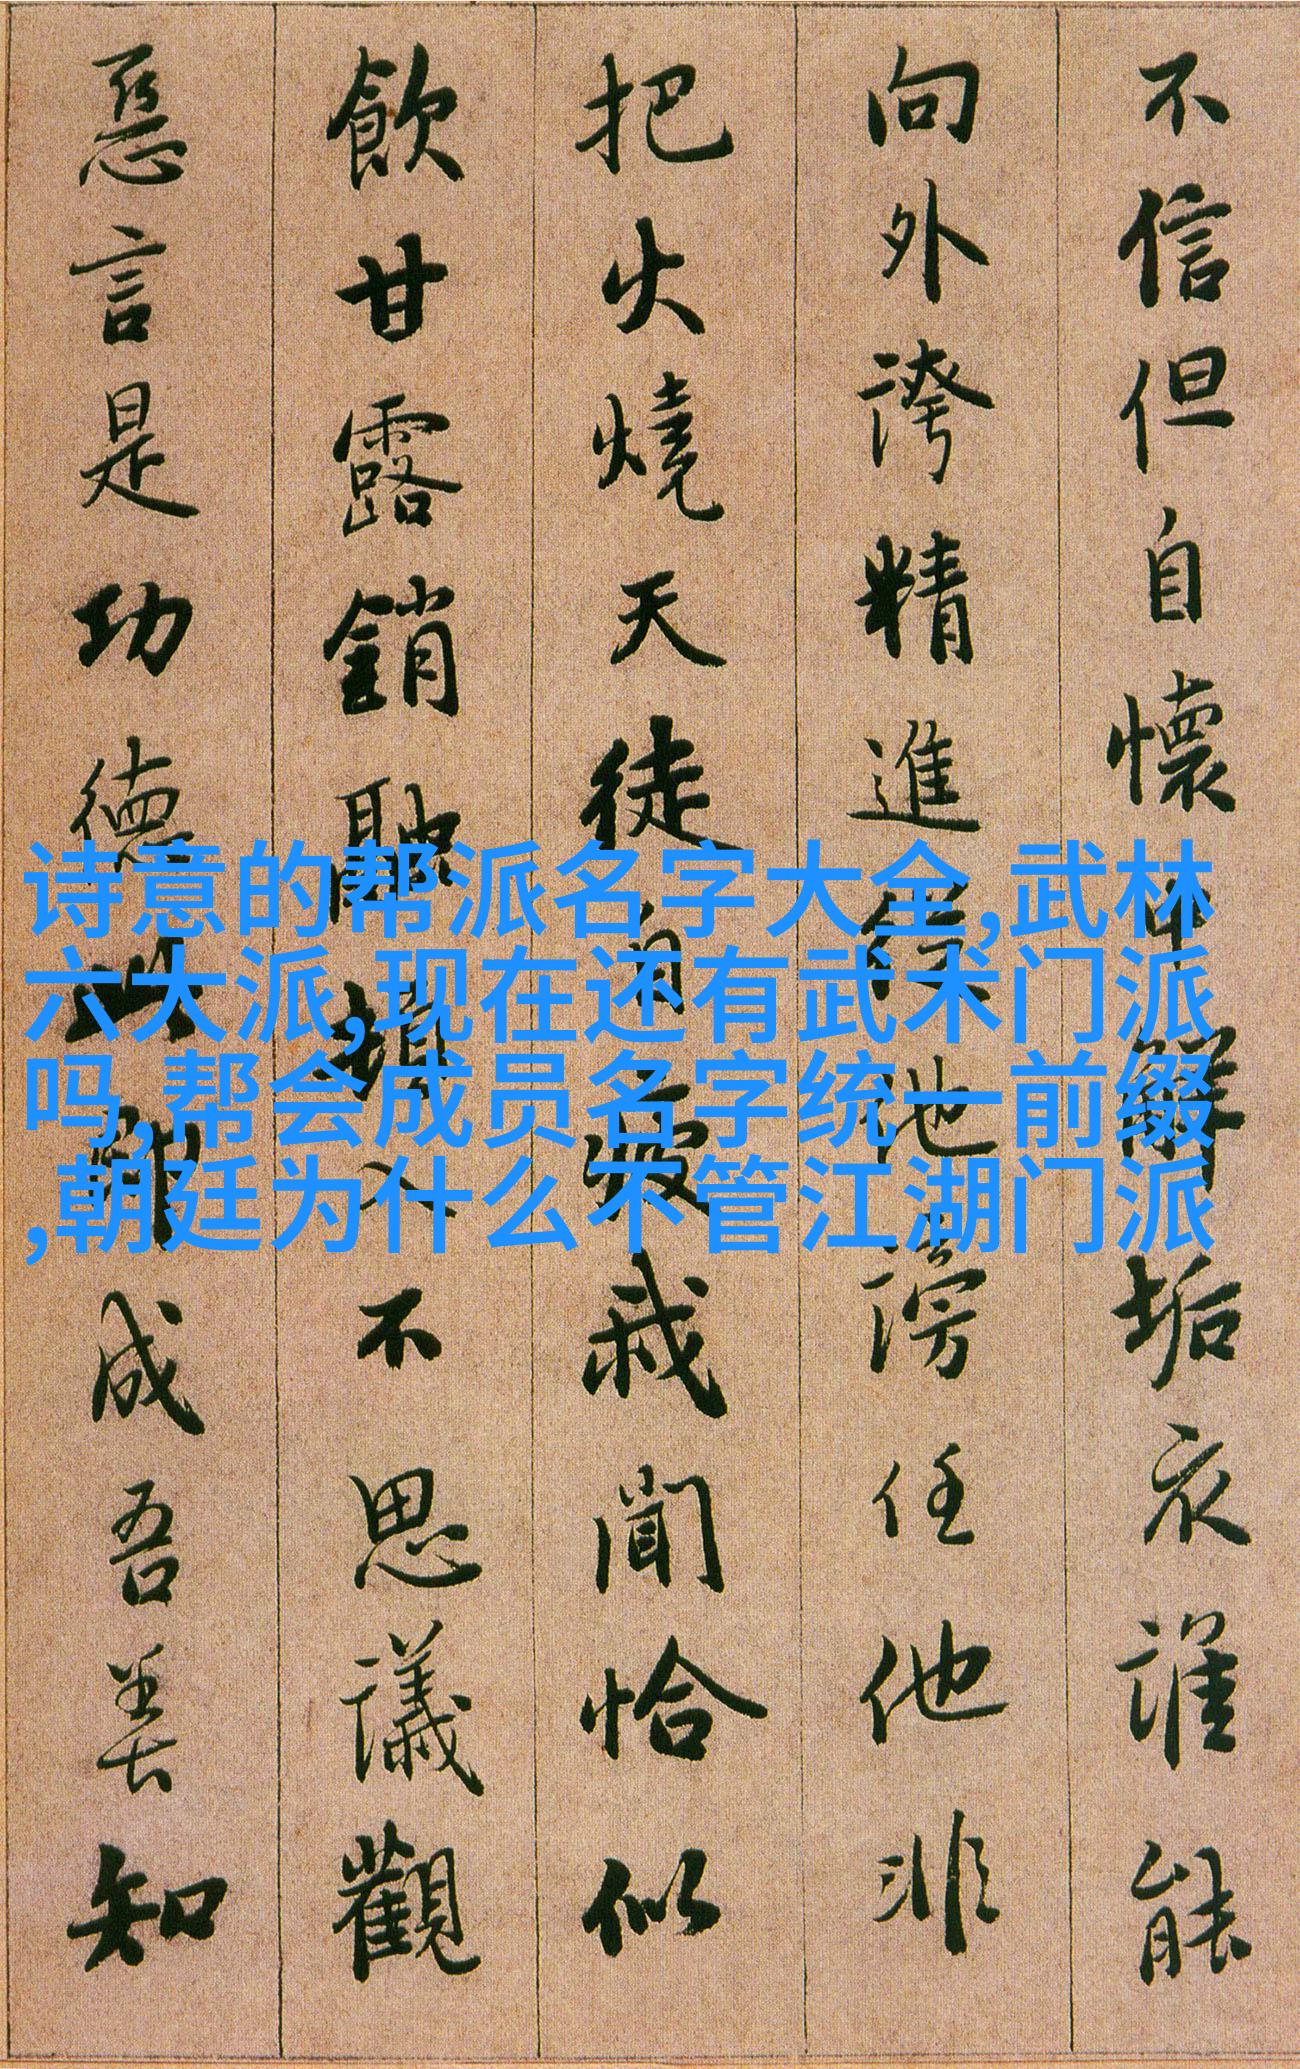 不信但自懷中解垢衣誰能
向外誇精進從他謗任他非
把火燒天徒自疲我聞恰似
飲甘露銷融頓入不思議觀
惡言是功德此成吾善知
诗意的帮派名字大全,武林
六大派,现在还有武术门派
吗,帮会成员名字统一前缀
,朝廷为什么不管江湖门派